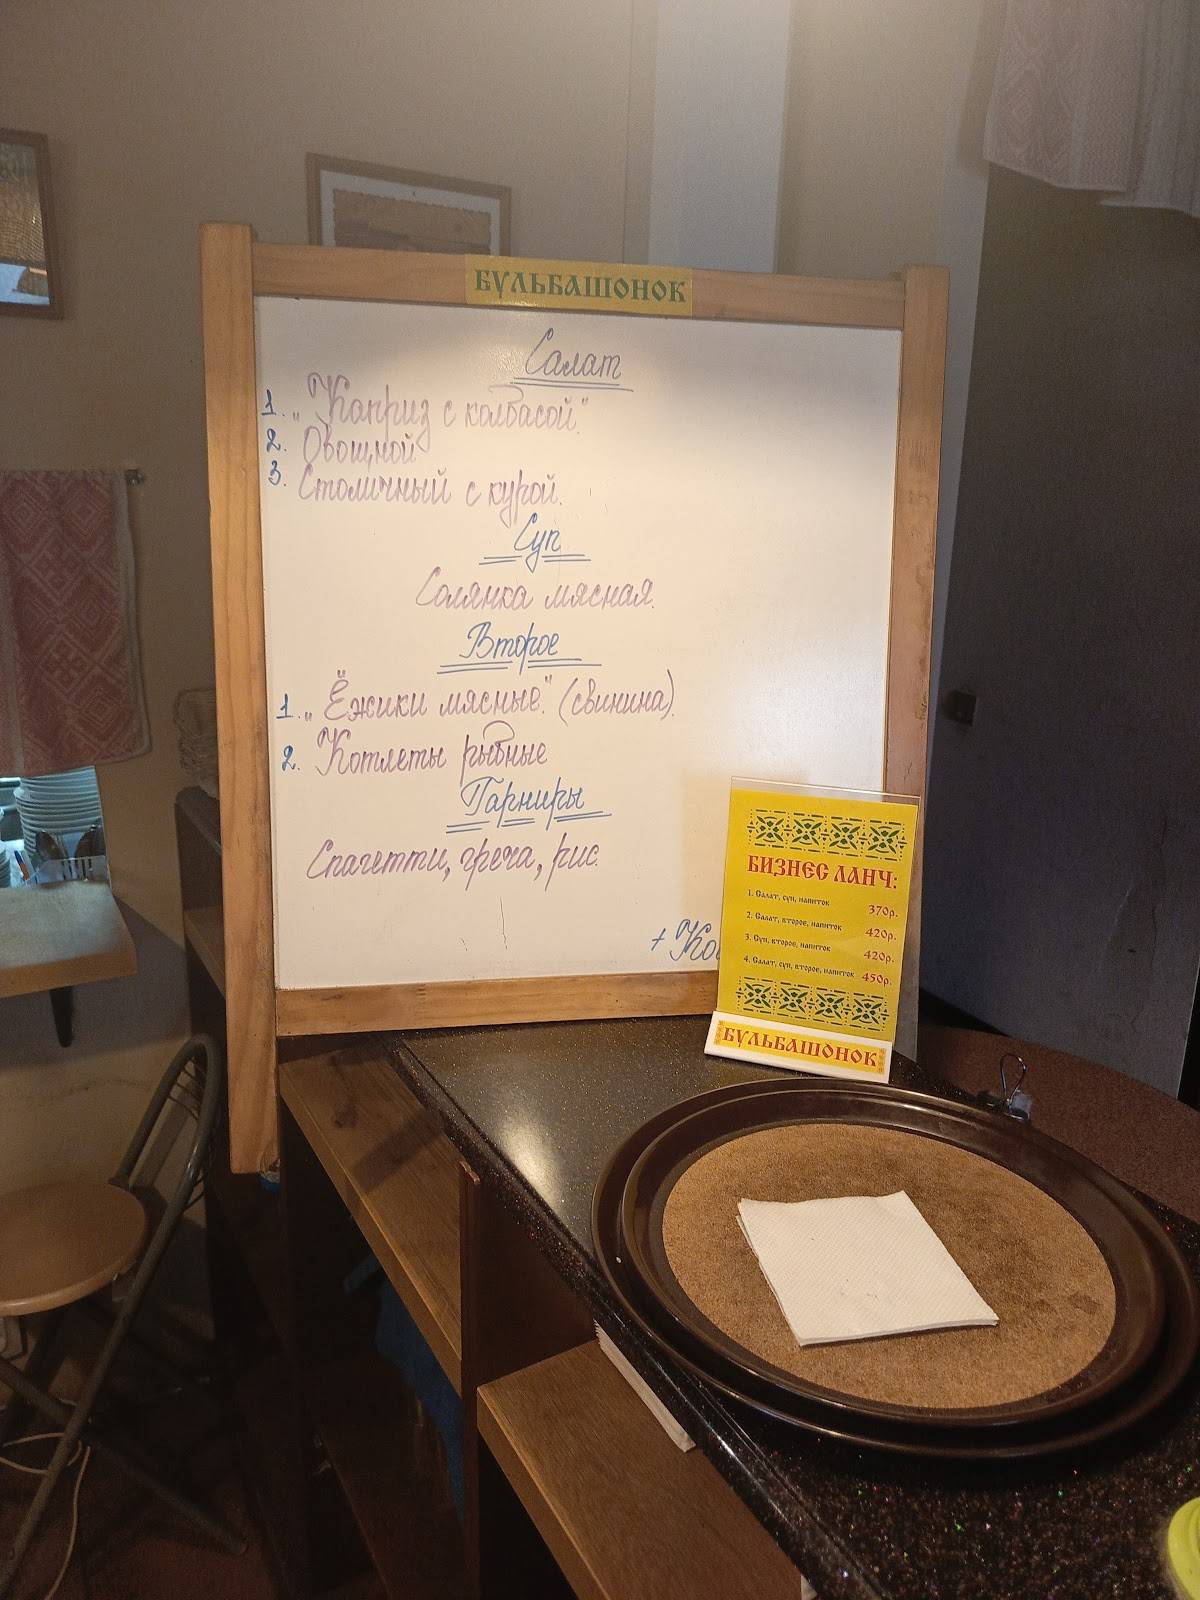 БУЛЬБАШОНОК
Салат
1. „Каприз с колбасой."
2. Овощной
3. Столичный с курой.
Суп
Солянка мясная.
Второе
1. „Ёжики мясные." (свинина).
2. Котлеты рыбные
Гарниры
Спагетти, греча, рис.
+
БИЗНЕС ЛАНЧ:
1. Салат, суп, напиток 370р.
2. Салат, второе, напиток 420р.
3. Суп, второе, напиток 420р.
4. Салат, суп, второе, напиток 450р.
БУЛЬБАШОНОК